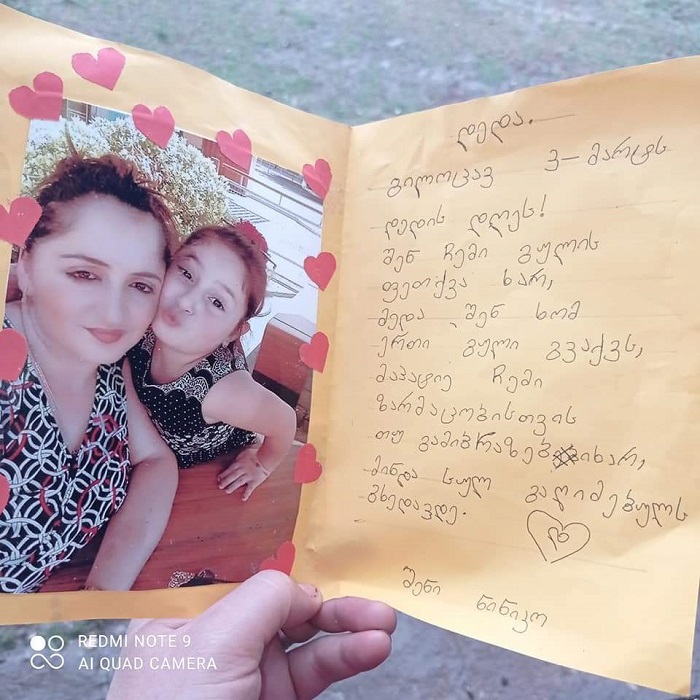 დედა.
გილოცავ 3–მარტს
დედის დღეს!
შენ ჩემი გულის
ფეთქვა ხარ,
მედა შენ ხომ
ერთი გული გვაქვს,
მაპატიე ჩემი
ზარმაცობისთვის
თუ გამიბრაზებიხარ,
მინდა სულ გაღიმებულს
გხედავდე.
შენი ნინიკო
REDMI NOTE 9
AI QUAD CAMERA